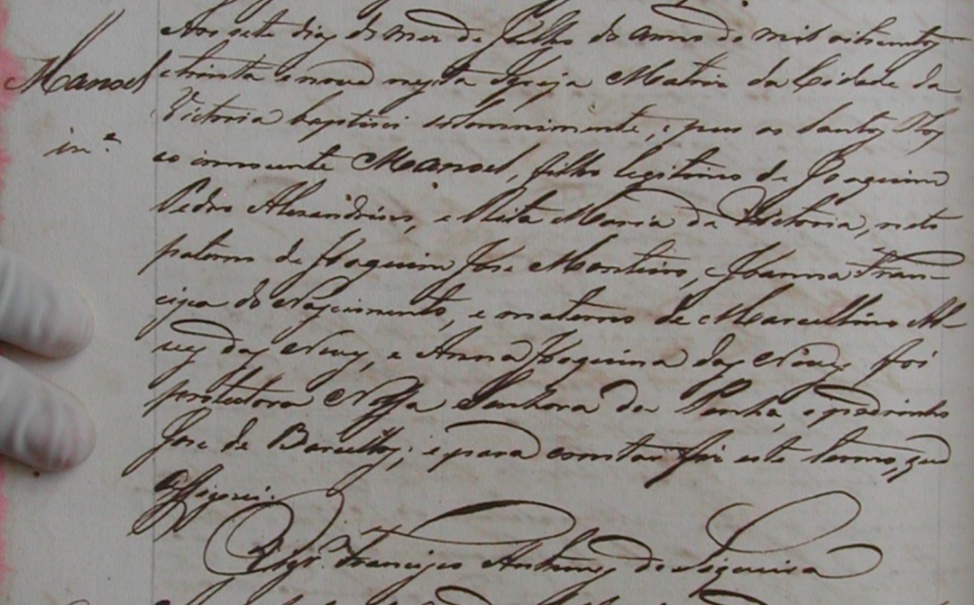 Aos sete dias do mes de Julho do anno de mil oitocentos
Manoel
e trinta e nove nesta Igreja Matriz da Cidade da
Victoria baptisei solemnimente, e pus os Santos
in.e
innocente Manoel, filho legitimo de Joaquim
Pedro Alexandrino, e Rita Maria da Victoria, neto
paterno de Joaquim Jose Monteiro, e Joanna Fran-
cisca do Nascimento, e materno de Marcellino Al-
ves das Neves, e Anna Joaquina das Neves. foi
protectora Nossa Senhora da Penha, e padrinho
Jose de Barcellos; e para constar fiz este termo, que
assignei.
Vigr.o Francisco Antunes de Sequeira